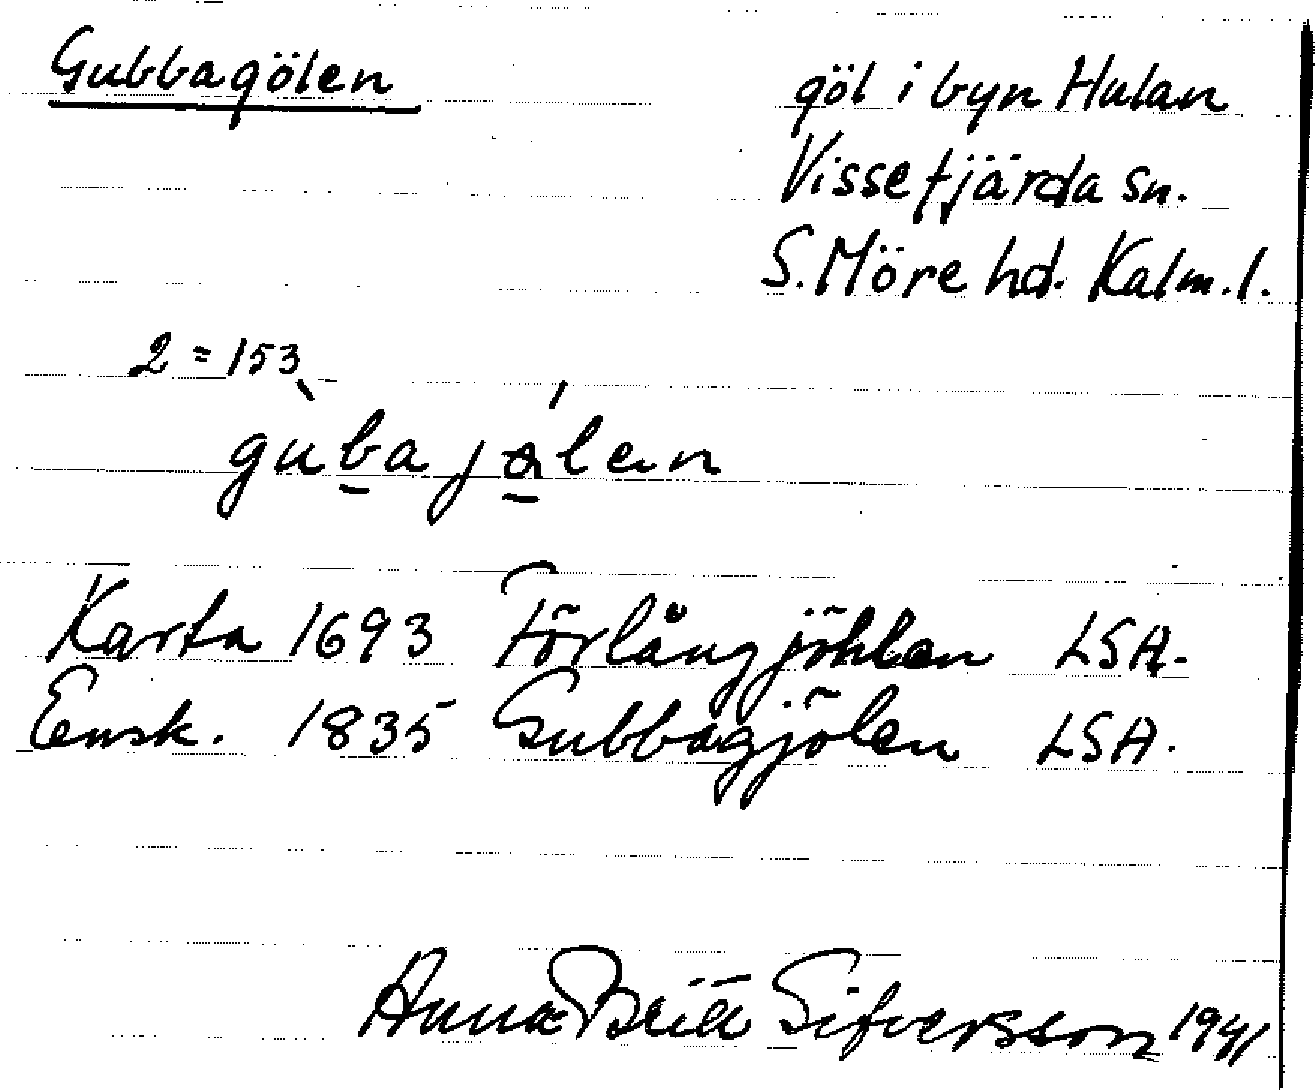 Gubbagölen
göl i byn Hulan
Vissefjärda sn.
S. Möre hd. Kalm. l.
2 = 153
Karta 1693 Förlångjöhlen LSA.
Ensk. 1835 Gubbagjölen LSA.
Anna Britt Sifversson 1941